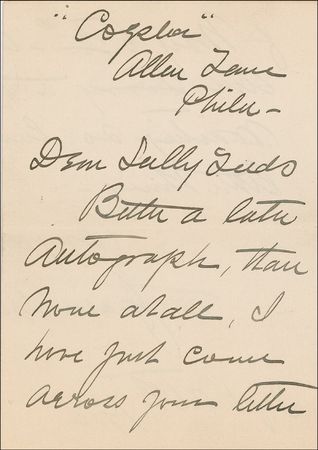 Allen Lane
Phila -
Dear Sally
Better a late
Autograph, than
None at all, I
have just come
across your letter